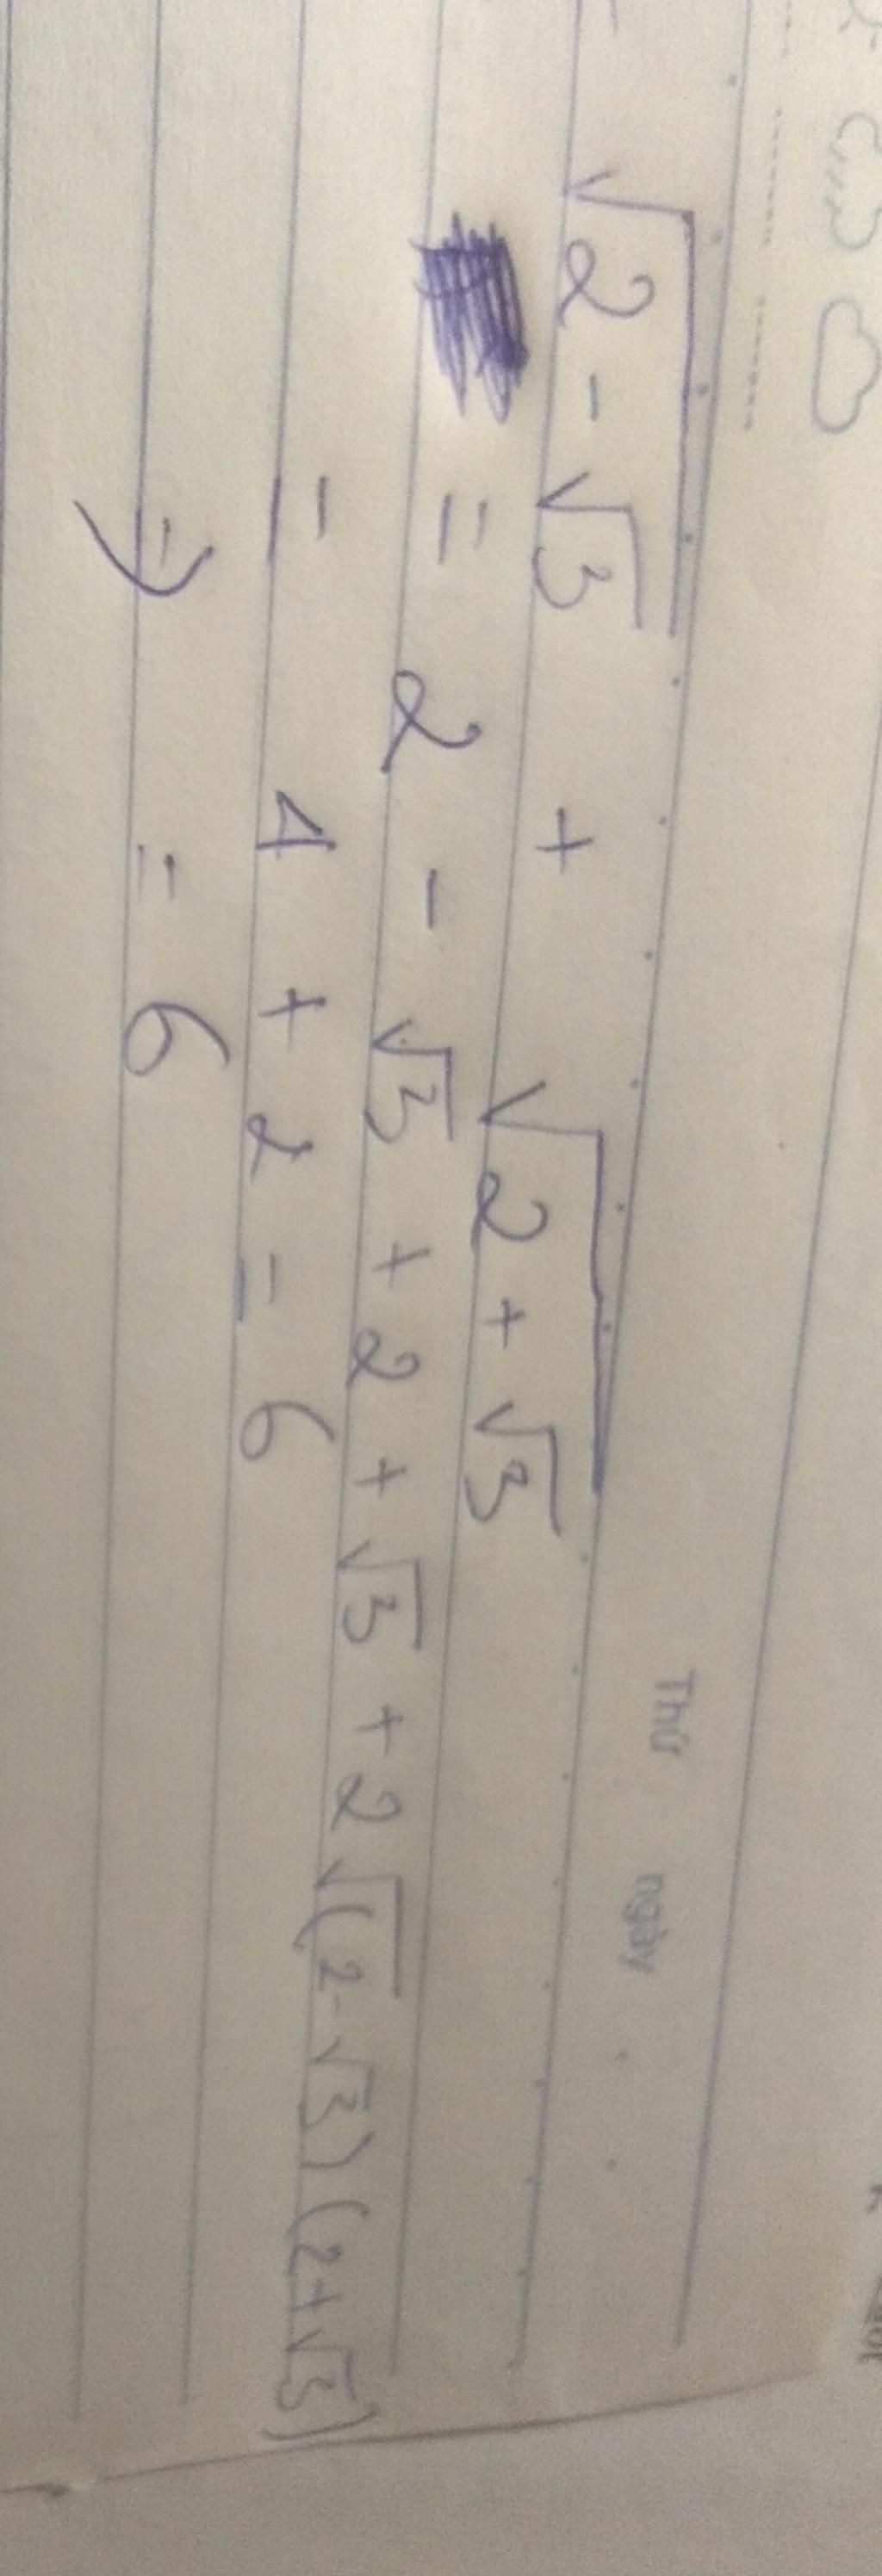 Thứ ngày
√(2 - √3) + √(2 + √3)
= 2 - √3 + 2 + √3 + 2√(2 - √3)(2 + √3)
= 4 + 2 = 6
⇒ = 6